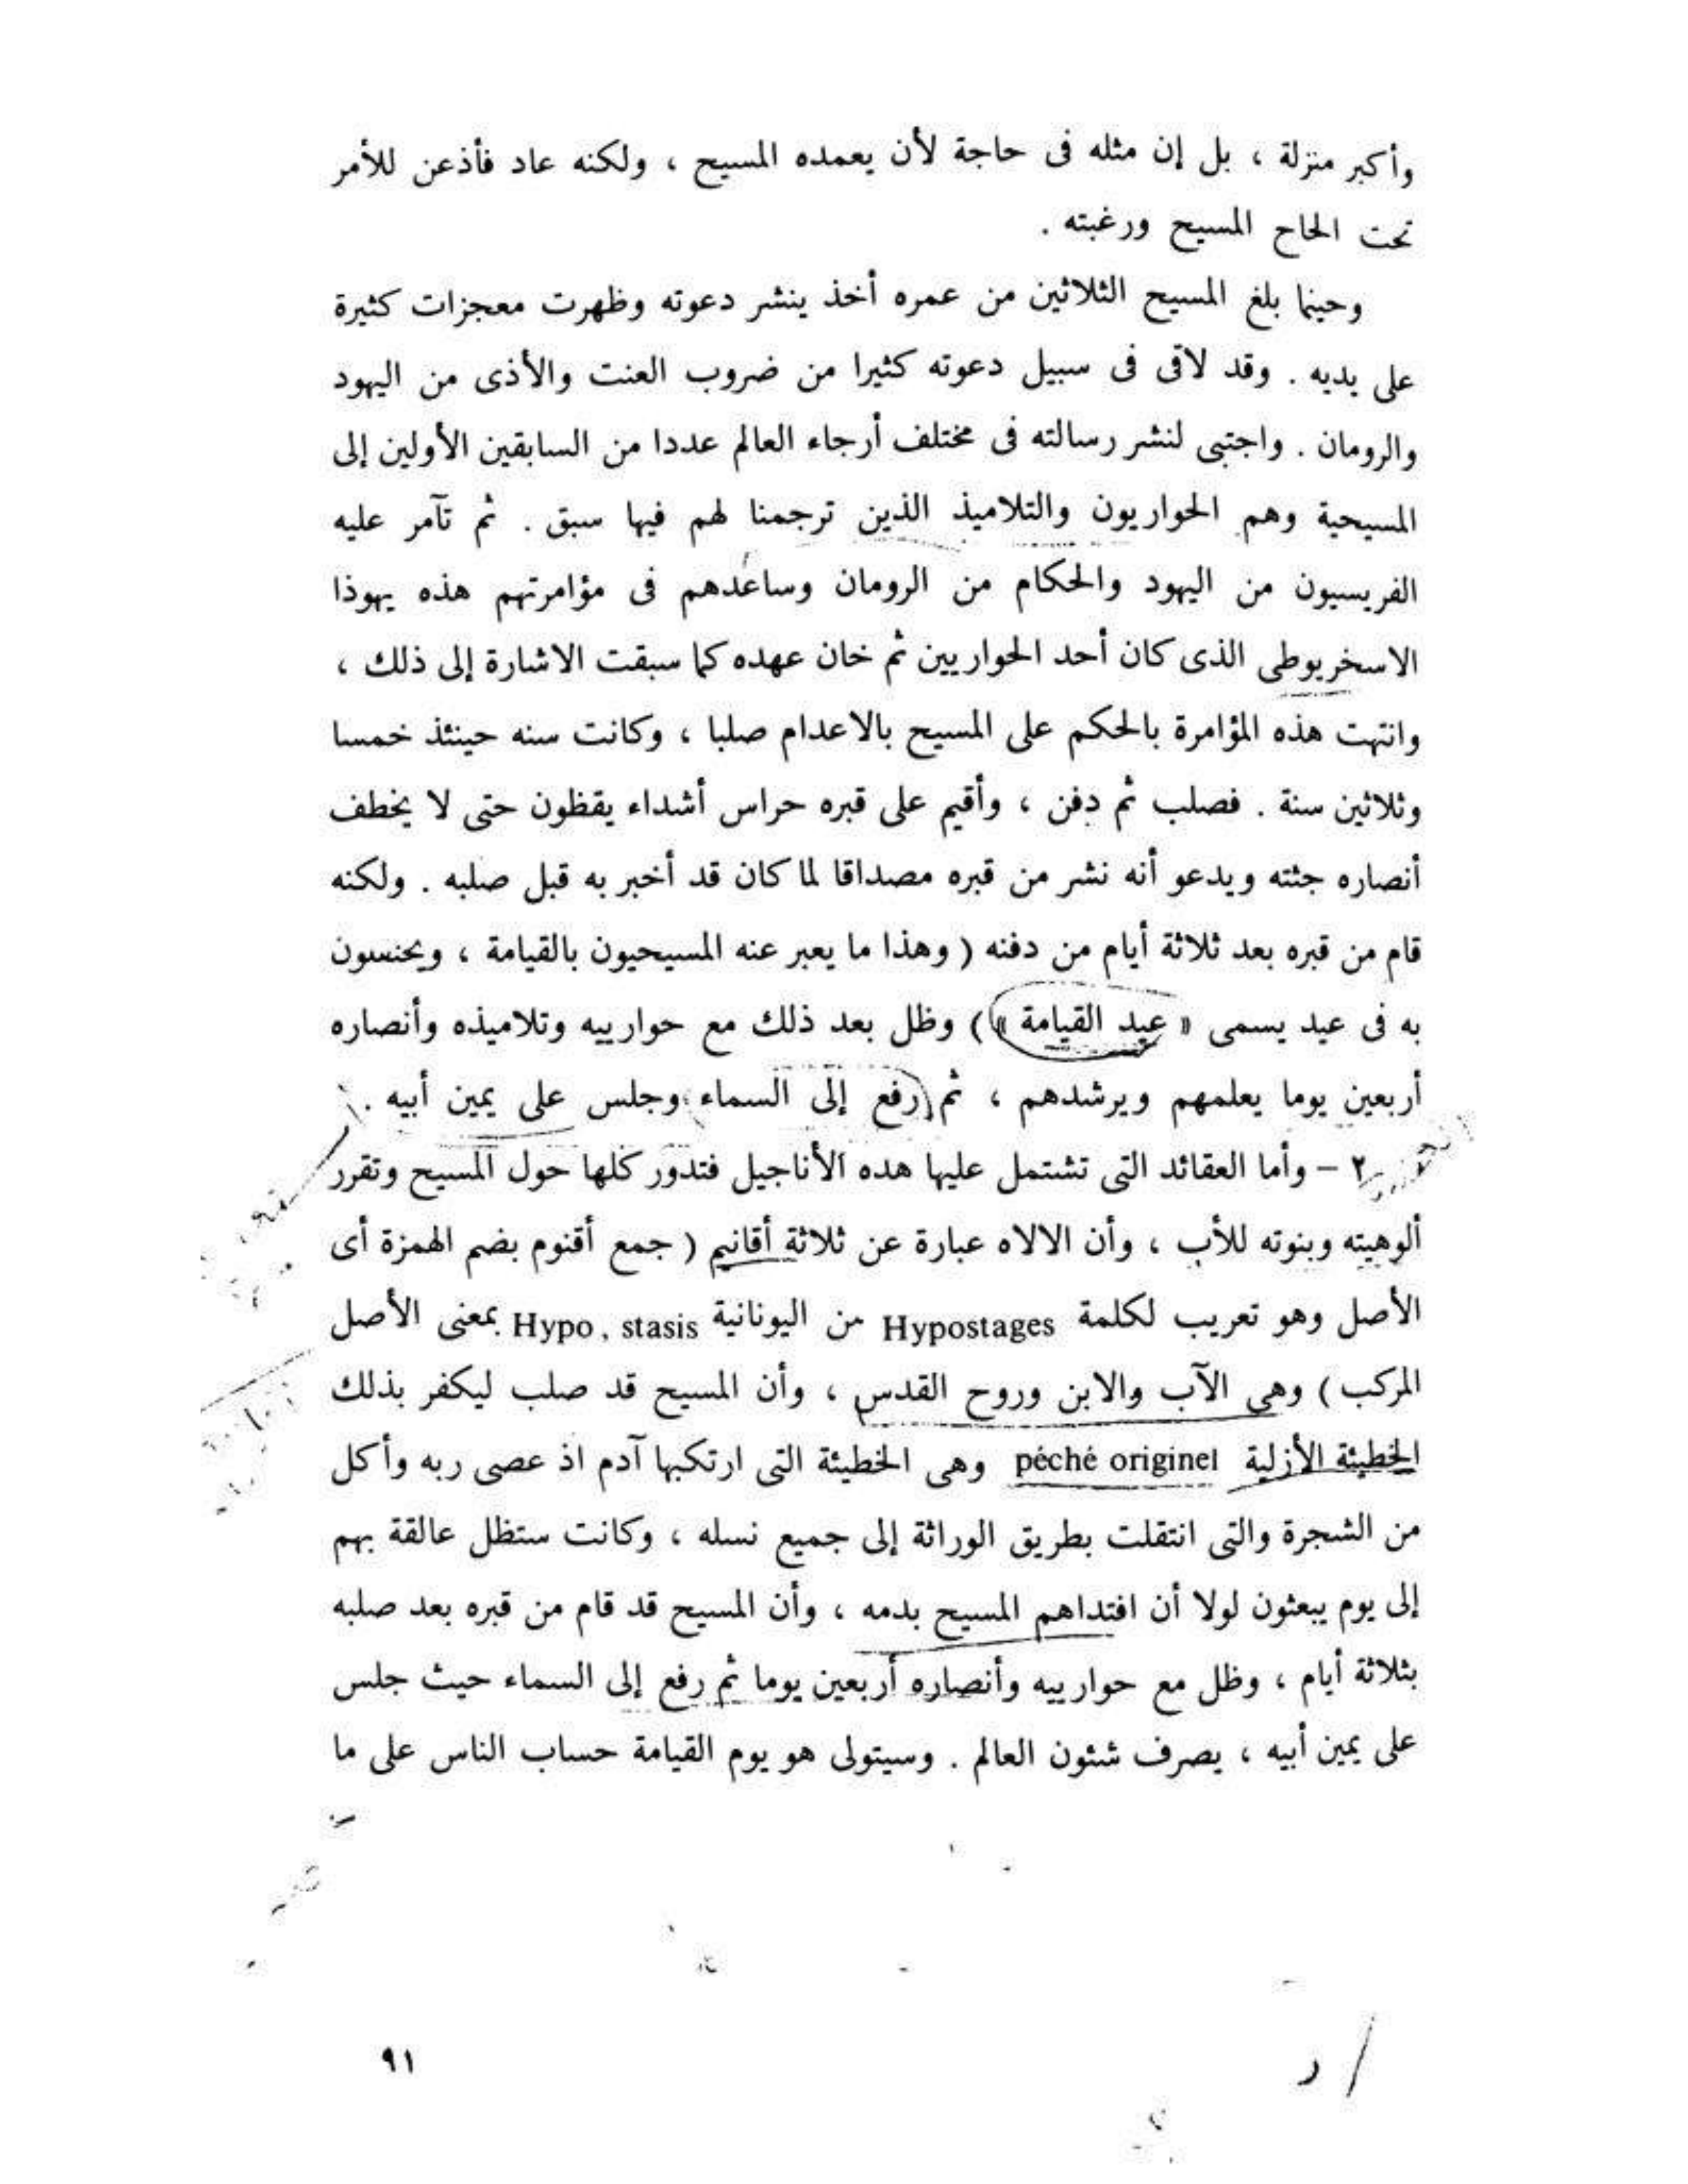 وأكبر منزلة ، بل إن مثله فى حاجة لأن يعمده المسيح ، ولكنه عاد فأذعن للأمر
تحت الحاح المسيح ورغبته .
وحينما بلغ المسيح الثلاثين من عمره أخذ ينشر دعوته وظهرت معجزات كثيرة
على يديه . وقد لاقى فى سبيل دعوته كثيرا من ضروب العنت والأذى من اليهود
والرومان . واجتبى لنشر رسالته فى مختلف أرجاء العالم عددا من السابقين الأولين إلى
المسيحية وهم الحواريون والتلاميذ الذين ترجمنا لهم فيها سبق . ثم تآمر عليه
الفريسيون من اليهود والحكام من الرومان وساعدهم فى مؤامرتهم هذه يهوذا
الاسخريوطى الذى كان أحد الحواريين ثم خان عهده كما سبقت الاشارة إلى ذلك ،
وانتهت هذه المؤامرة بالحكم على المسيح بالاعدام صلبا ، وكانت سنه حينئذ خمسا
وثلاثين سنة . فصلب ثم دفن ، وأقيم على قبره حراس أشداء يقظون حتى لا يخطف
أنصاره جثته ويدعو أنه نشر من قبره مصداقا لما كان قد أخبر به قبل صلبه . ولكنه
قام من قبره بعد ثلاثة أيام من دفنه ( وهذا ما يعبر عنه المسيحيون بالقيامة ، ويحتسون
به فى عيد يسمى « عيد القيامة » ) وظل بعد ذلك مع حوارييه وتلاميذه وأنصاره
أربعين يوما يعلمهم ويرشدهم ، ثم رفع إلى السماء وجلس على يمين أبيه .
٢ – وأما العقائد التى تشتمل عليها هده الأناجيل فتدور كلها حول المسيح وتقرر
ألوهيته وبنوته للأب ، وأن الالاه عبارة عن ثلاثة أقانيم ( جمع أقنوم بضم الهمزة أى
الأصل وهو تعريب لكلمة Hypostages من اليونانية Hypo, stasis بمعنى الأصل
المركب ) وهى الآب والابن وروح القدس ، وأن المسيح قد صلب ليكفر بذلك
الخطيئة الأزلية péché originel وهى الخطيئة التى ارتكبها آدم اذ عصى ربه وأكل
من الشجرة والتى انتقلت بطريق الوراثة إلى جميع نسله ، وكانت ستظل عالقة بهم
إلى يوم يبعثون لولا أن افتداهم المسيح بدمه ، وأن المسيح قد قام من قبره بعد صلبه
بثلاثة أيام ، وظل مع حوارييه وأنصاره أربعين يوما ثم رفع إلى السماء حيث جلس
على يمين أبيه ، يصرف شئون العالم . وسيتولى هو يوم القيامة حساب الناس على ما
٩١